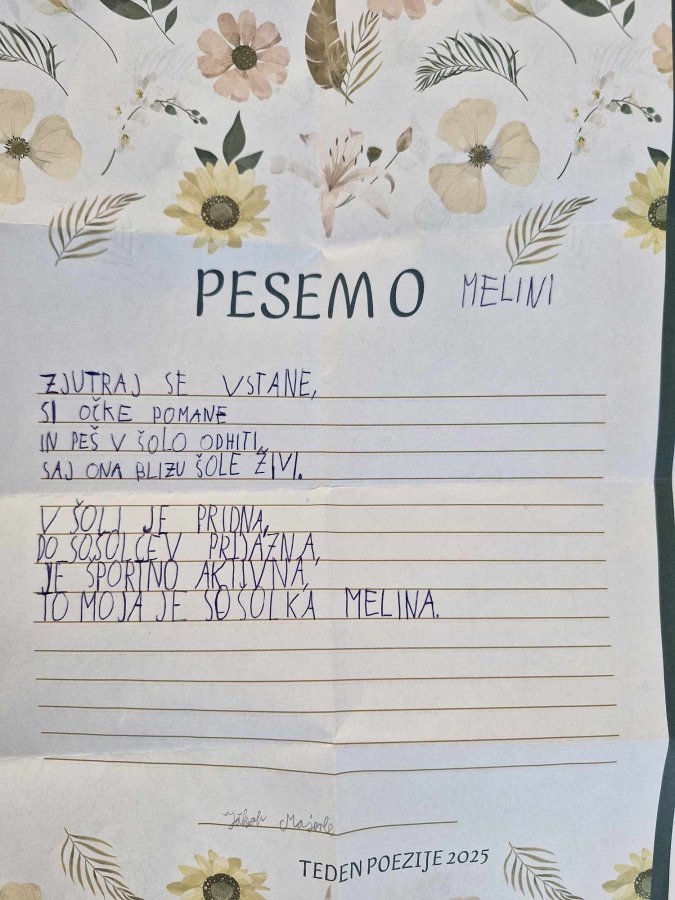 PESEMO MELINI
ZJUTRAJ SE VSTANE,
SI OČKE POMANE
IN PEŠ V ŠOLO ODHITI,
SAJ ONA BLIZU ŠOLE ŽIVI.
V ŠOLI JE PRIDNA,
DO SOŠOLCEV PRIJAZNA,
JE ŠPORTNO AKTIVNA,
TO MOJA JE SOŠOLKA MELINA.
Jakob Majerle
TEDEN POEZIJE 2025